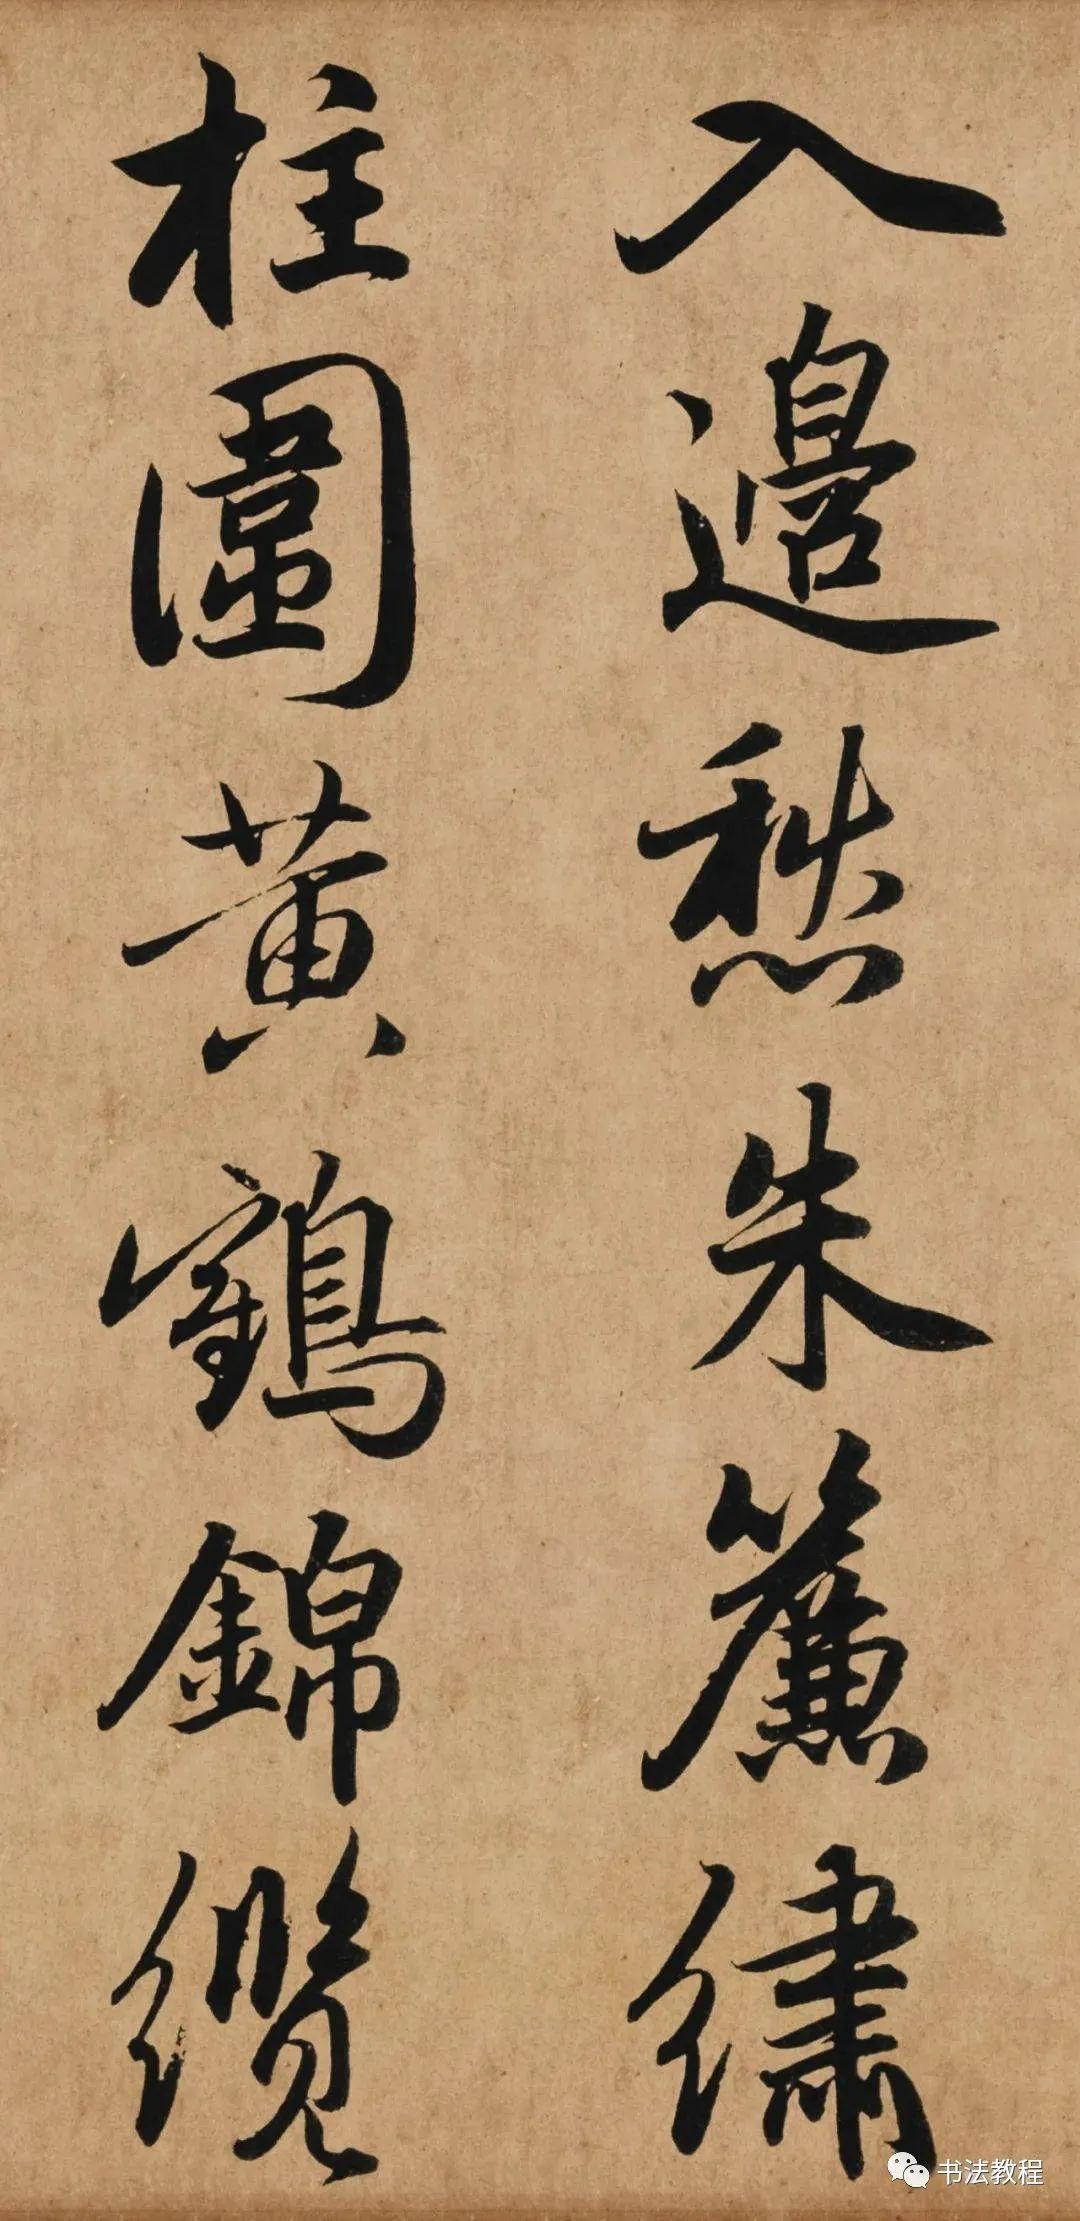 入邊愁朱簾繡
柱圍黃鶴錦纜
书法教程